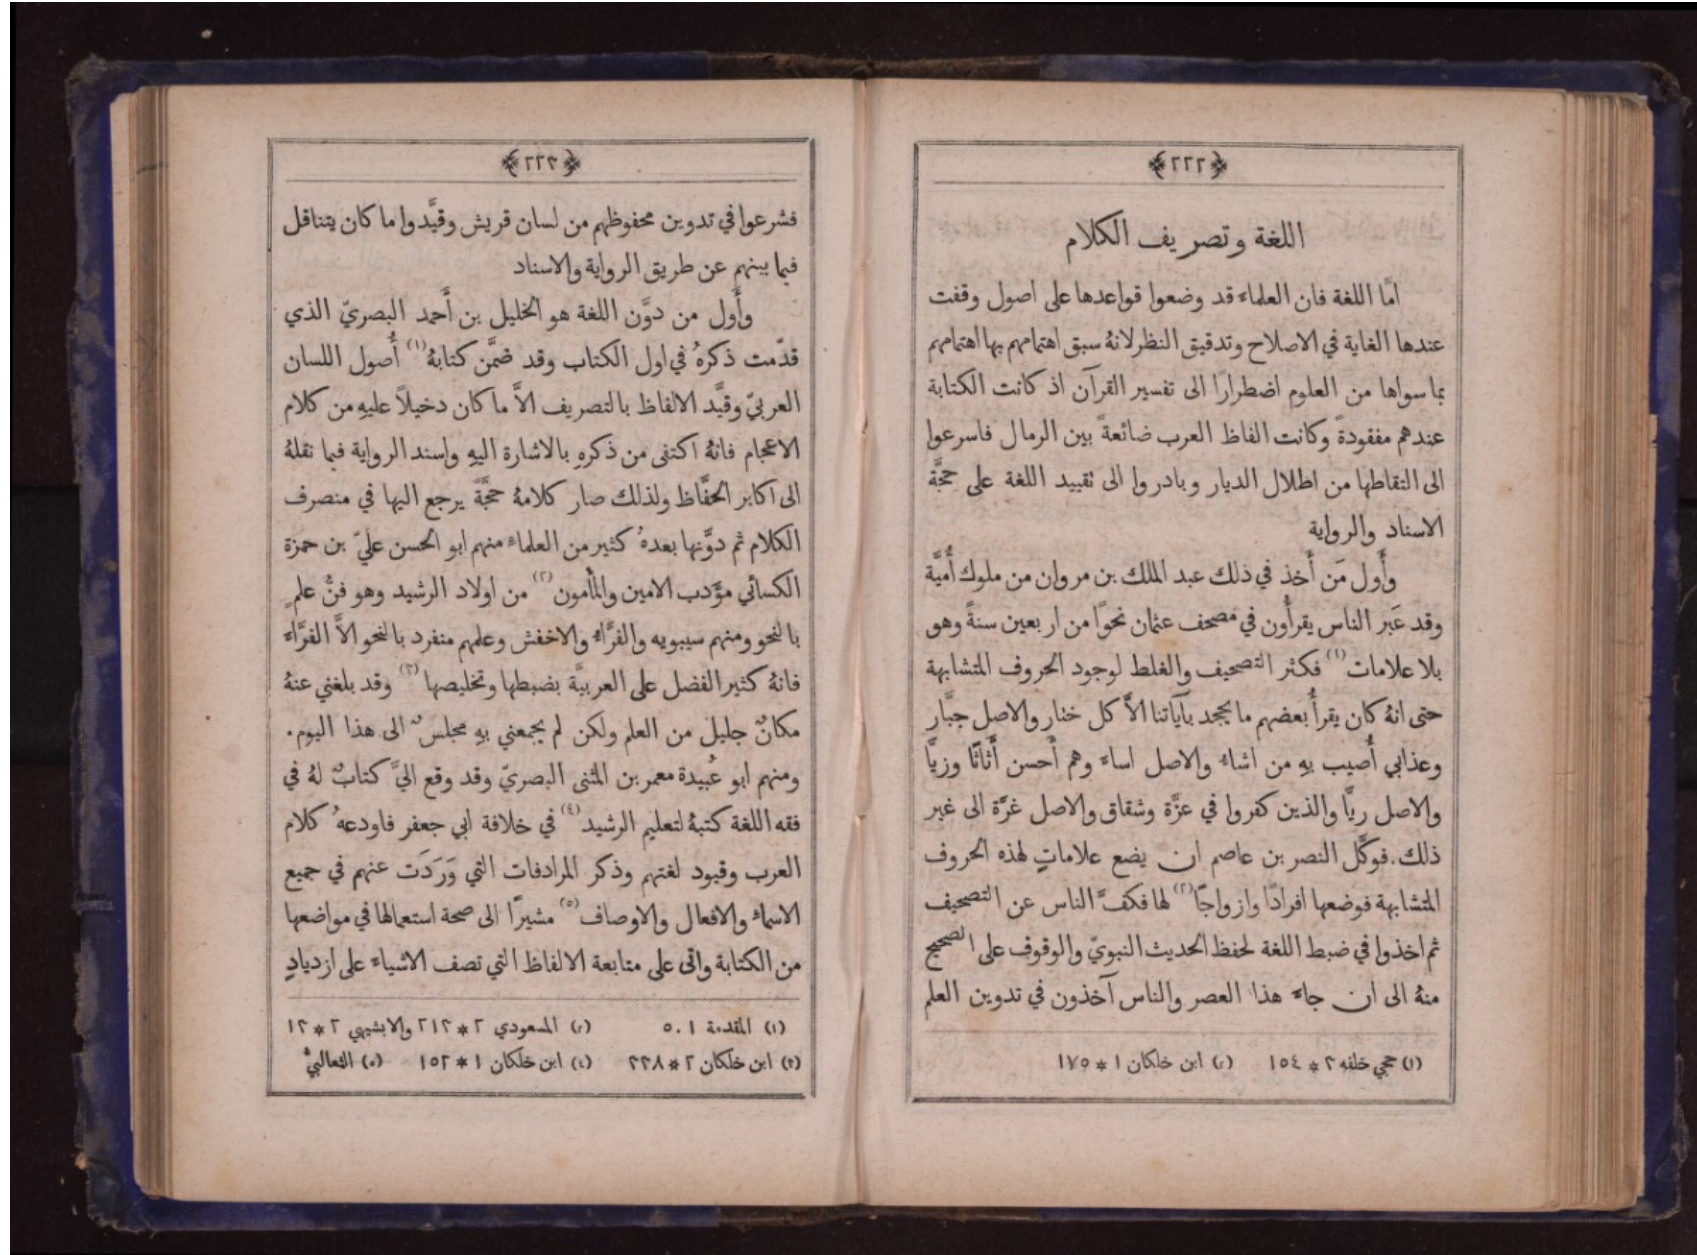 ﴿٢٢٢﴾
اللغة وتصريف الكلام
امَّا اللغة فان العلماء قد وضعوا قواعدها على اصول وقفت
عندها الغاية في الاصلاح وتدقيق النظر لانهُ سبق اهتمامهم بها اهتمامهم
بما سواها من العلوم اضطرارًا الى تفسير القرآن اذ كانت الكتابة
عندهم مفقودةً وكانت الفاظ العرب ضائعةً بين الرمال فاسرعوا
الى التقاطها من اطلال الديار وبادروا الى تقييد اللغة على حجَّة
الاسناد والرواية
وأَول مَن أَخذ في ذلك عبد الملك بن مروان من ملوك أُميَّة
وقد عَبَر الناس يقرأُون في مصحف عثمان نحوًا من اربعين سنةً وهو
بلا علامات (١) فكثر التصحيف والغلط لوجود الحروف المتشابهة
حتى انهُ كان يقرأُ بعضهم ما يجحد بآياتنا الاَّ كل ختار والاصل جبَّار
وعذابي أُصيب بهِ من اشاءُ والاصل اساء وهم أَحسن أَثاثًا وزيًّا
والاصل ريًّا والذين كفروا في عزَّة وشقاق والاصل غرَّة الى غير
ذلك. فوكَّل النصر بن عاصم ان يضع علاماتٍ لهذه الحروف
المتشابهة فوضعها افرادًا وازواجًا (٢) لها فكفَّ الناس عن التصحيف
ثم اخذوا في ضبط اللغة لحفظ الحديث النبويّ والوقوف على الصحيح
منهُ الى ان جاء هذا العصر والناس آخذون في تدوين العلم
(١) حجي خلفه ٣ * ١٥٤ (٢) ابن خلكان ١ * ١٧٥
﴿٢٢٣﴾
فشرعوا في تدوين محفوظهم من لسان قريش وقيَّدوا ما كان يتناقل
فيما بينهم عن طريق الرواية والاسناد
وأَول من دوَّن اللغة هو الخليل بن أَحمد البصريّ الذي
قدَّمت ذكرهُ في اول الكتاب وقد ضمَّن كتابهُ (١) أُصول اللسان
العربيّ وقيَّد الالفاظ بالتصريف الاَّ ما كان دخيلاً عليهِ من كلام
الاعجام فانهُ اكتفى من ذكرهِ بالاشارة اليهِ واسند الرواية فيما نقلهُ
الى اكابر الحفَّاظ ولذلك صار كلامهُ حجَّةً يرجع اليها في منصرف
الكلام ثم دوَّنها بعدهُ كثير من العلماء منهم ابو الحسن عليّ بن حمزة
الكسائي مؤَدب الامين والمأْمون (٢) من اولاد الرشيد وهو فنُّ علمٍ
بالنحو ومنهم سيبويه والفرَّاءُ والاخفش وعلمهم منفرد بالنحو الاَّ الفرَّاء
فانهُ كثير الفضل على العربيَّة بضبطها وتخليصها (٣) وقد بلغني عنهُ
مكانٌ جليل من العلم ولكن لم يجمعني بهِ مجلسٌ الى هذا اليوم.
ومنهم ابو عُبيدة معمر بن المثنى البصريّ وقد وقع اليَّ كتابٌ لهُ في
فقه اللغة كتبهُ لتعليم الرشيد (٤) في خلافة ابي جعفر فاودعهُ كلام
العرب وقيود لغتهم وذكر المرادفات التي وَرَدَت عنهم في جميع
الاسماءُ والافعال والاوصاف (٥) مشيرًا الى صحة استعمالها في مواضعها
من الكتابة واتى على متابعة الالفاظ التي تصف الاشياء على ازديادٍ
(١) المقدمة ٥٠١ (٢) المسعودي ٢ * ٢١٣ والابشيهي ٢ * ١٣
(٣) ابن خلكان ٢ * ٣٣٨ (٤) ابن خلكان ١ * ١٥٢ (٥) الثعالبيُّ